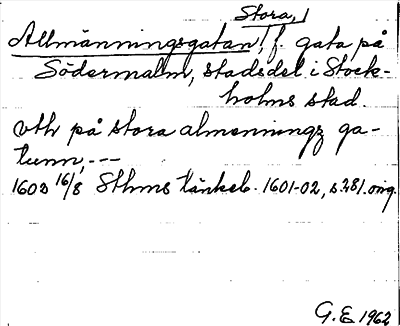 Stora,
Allmänningsgatan, f. gata på
Södermalm, stadsdel i Stock-
holms stad.
vth på stora almenningz ga-
tunn, ---
1602 16/8 Sthms tänkeb. 1601-02, s. 281. orig.
G. E 1962